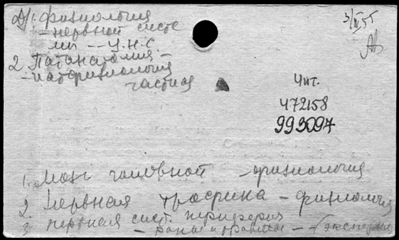 1. физиология
- нервной систе
мы -- Ц.Н.С.
2. Патанатомия -
- патфизиология
частная
3/VI 55
Чит.
472158
993097
1. Мозг головной - физиология
2. Нервная трофика - физиология
3. Нервная сист. периферич.
- раны и травмы - (эксперим